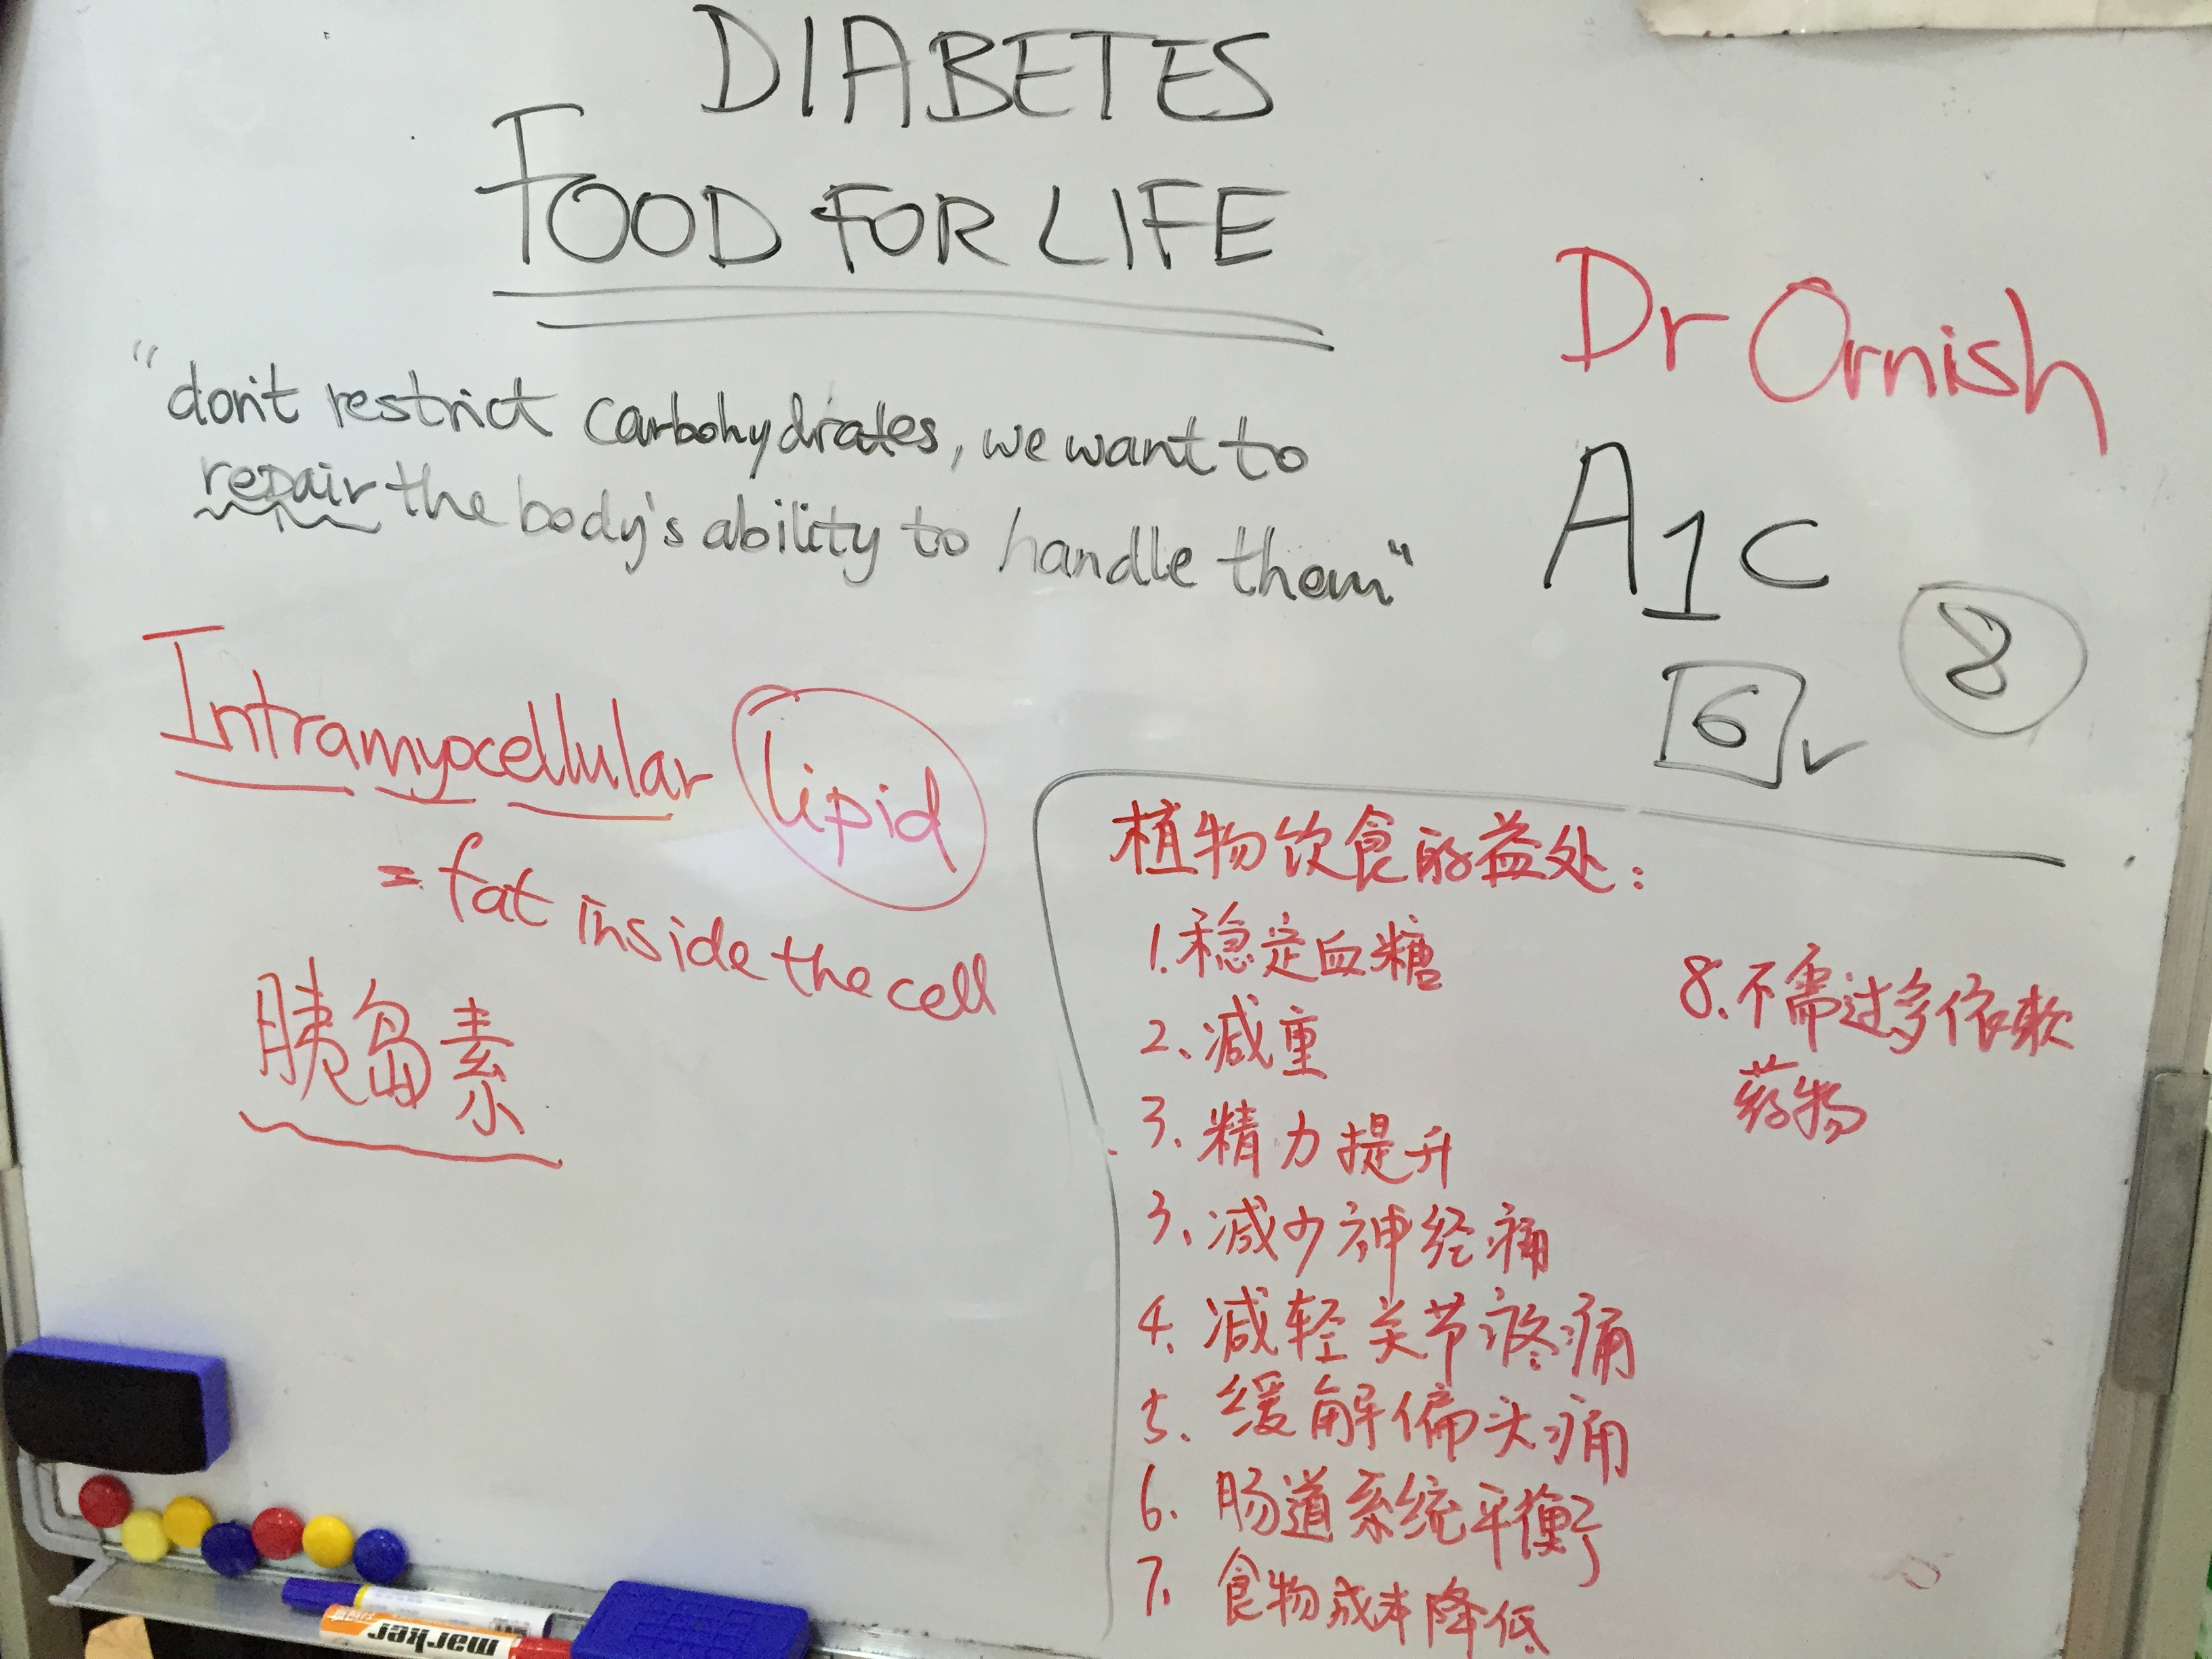 DIABETES
FOOD FOR LIFE
"don't restrict carbohydrates, we want to
repair the body's ability to handle them"
Dr Ornish
A1C
8
6
Intramyocellular lipid
= fat inside the cell
胰岛素
植物饮食的益处:
1.稳定血糖
2、减重
3.精力提升
3、减少神经痛
4.减轻关节疼痛
5.缓解偏头痛
6.肠道系统平衡
7.食物成本降低
8.不需过多依赖
药物
marker